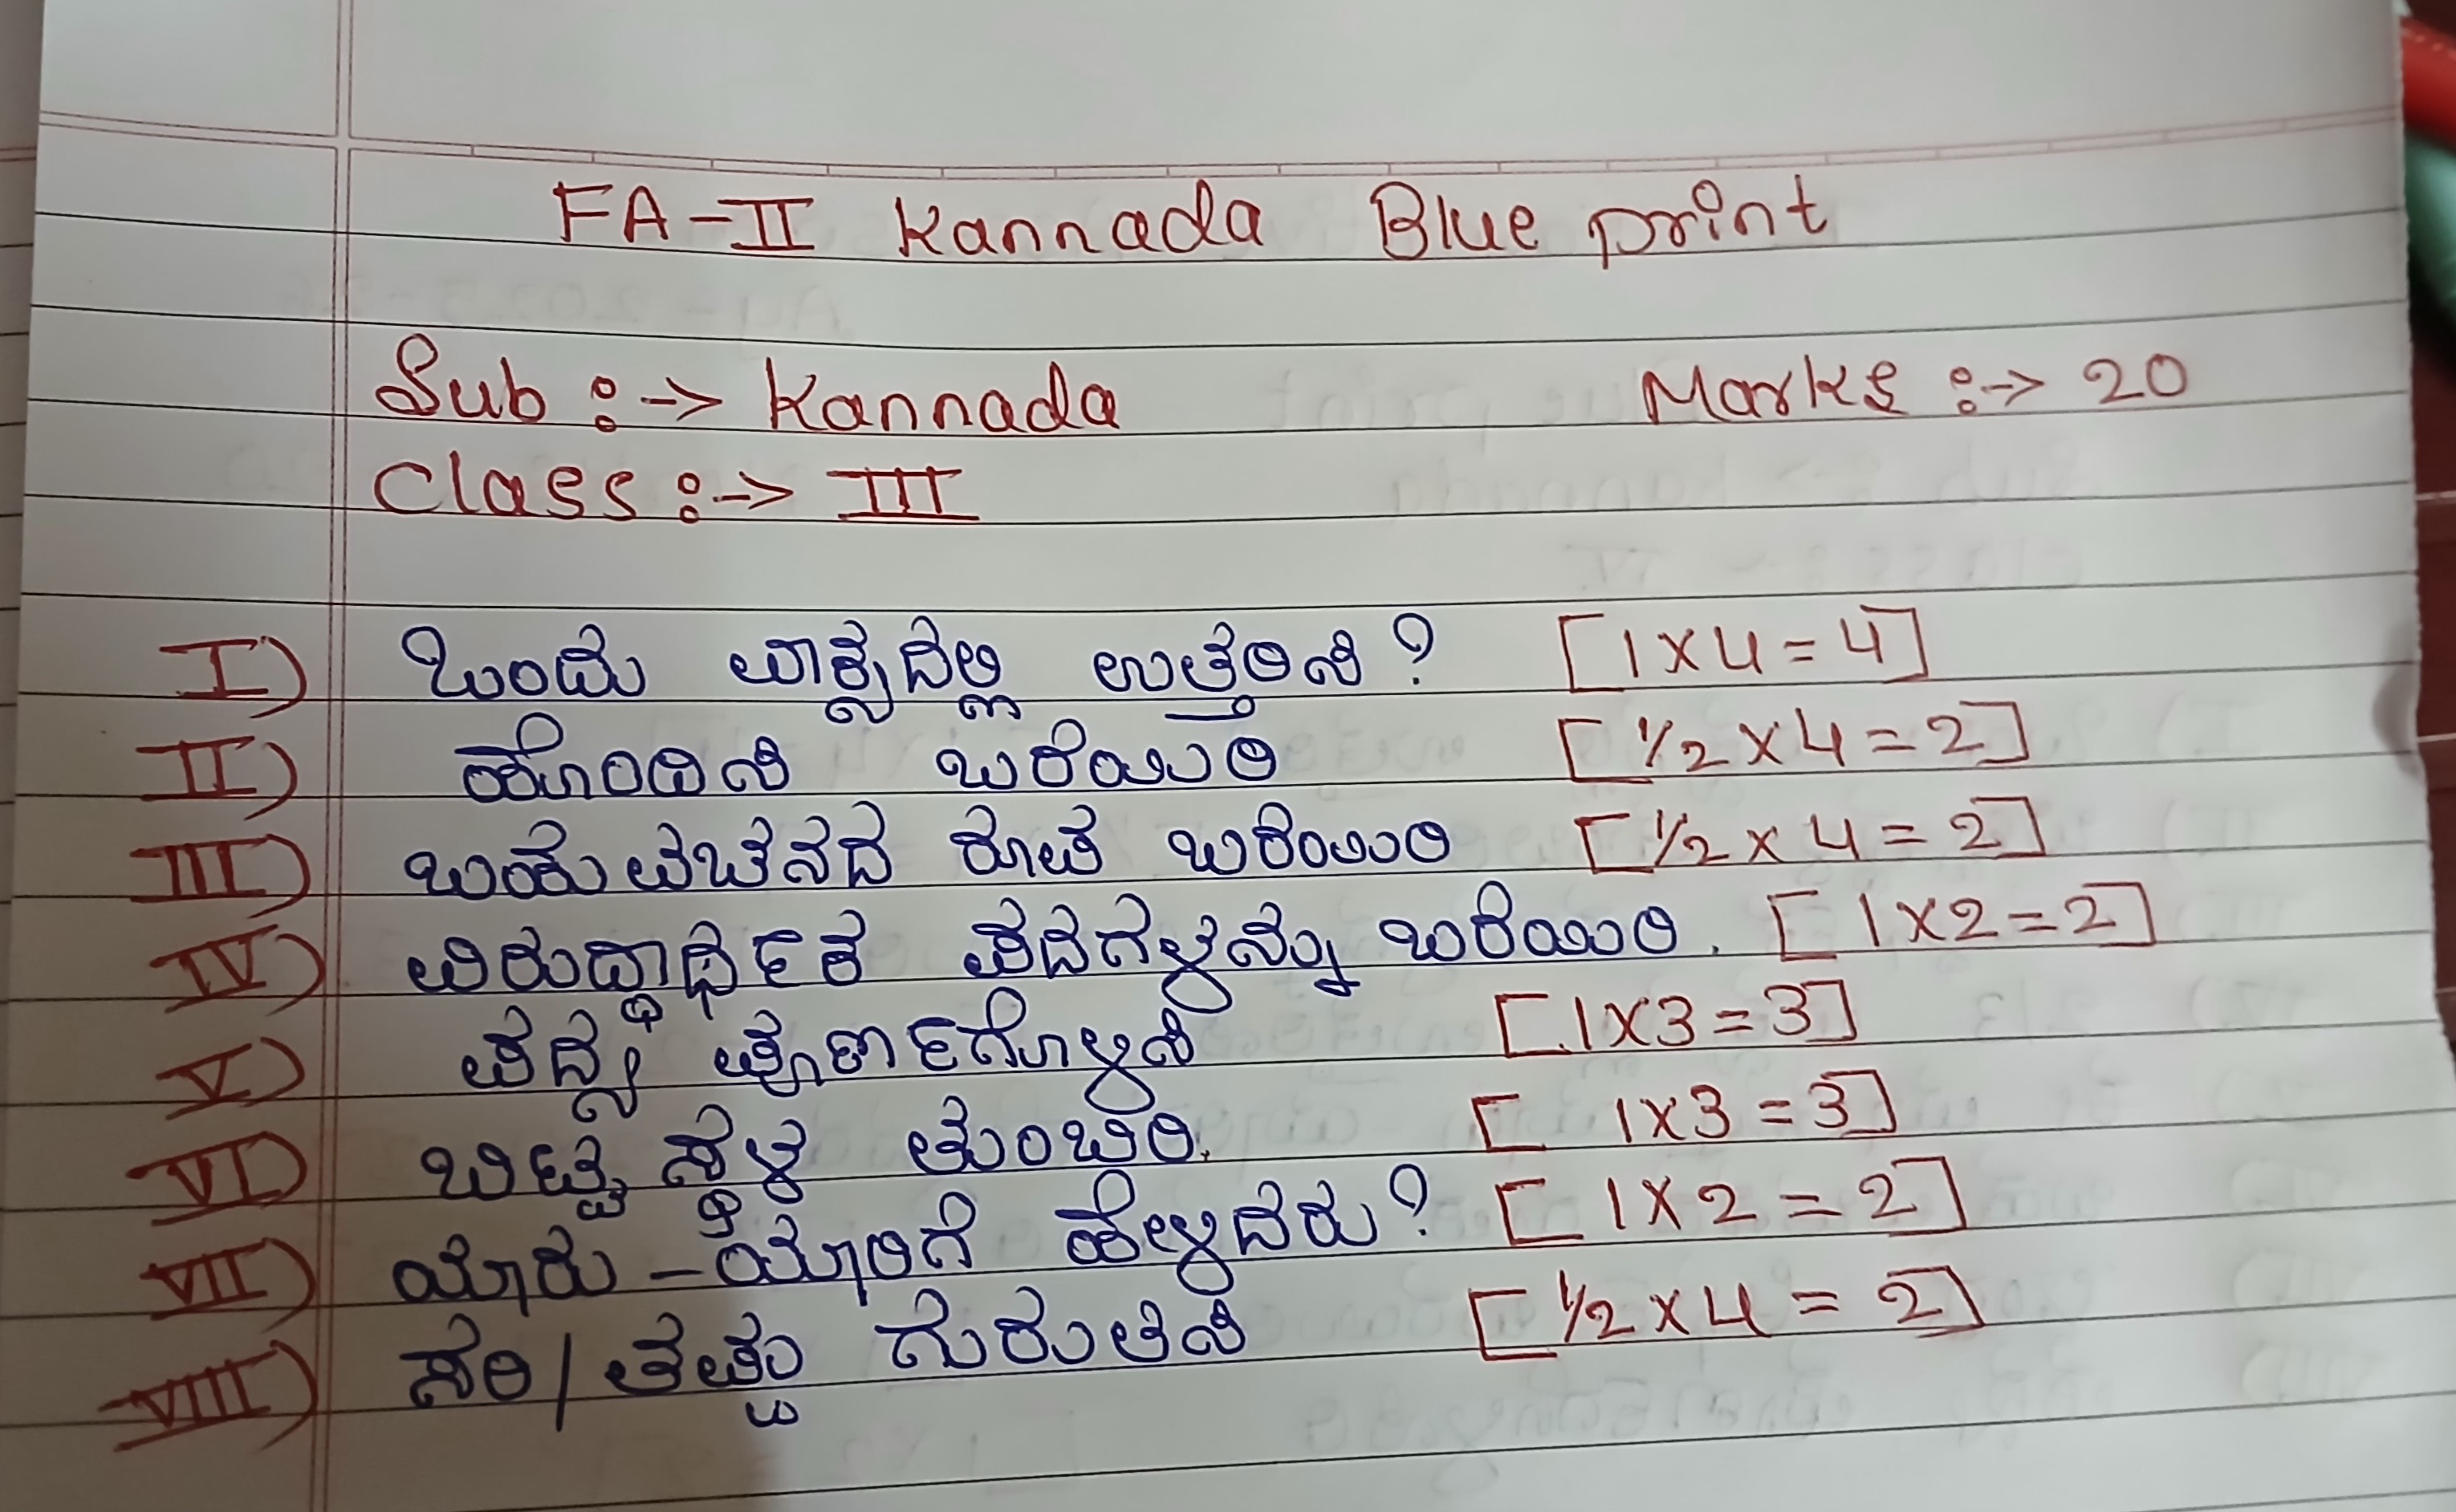 FA-II Kannada Blue print
Sub :-> Kannada Marks :-> 20
Class :-> III
I) ಒಂದು ವಾಕ್ಯದಲ್ಲಿ ಉತ್ತರಿಸಿ? [1x4=4]
II) ಹೊಂದಿಸಿ ಬರೆಯಿರಿ [1/2x4=2]
III) ಬಹುವಚನದ ರೂಪ ಬರೆಯಿರಿ [1/2x4=2]
IV) ವಿರುದ್ಧಾರ್ಥಕ ಪದಗಳನ್ನು ಬರೆಯಿರಿ. [1x2=2]
V) ಪದ್ಯ ಪೂರ್ಣಗೊಳಿಸಿ [1x3=3]
VI) ಬಿಟ್ಟ ಸ್ಥಳ ತುಂಬಿರಿ. [1x3=3]
VII) ಯಾರು-ಯಾರಿಗೆ ಹೇಳಿದರು? [1x2=2]
VIII) ಸರಿ/ತಪ್ಪು ಗುರುತಿಸಿ [1/2x4=2]